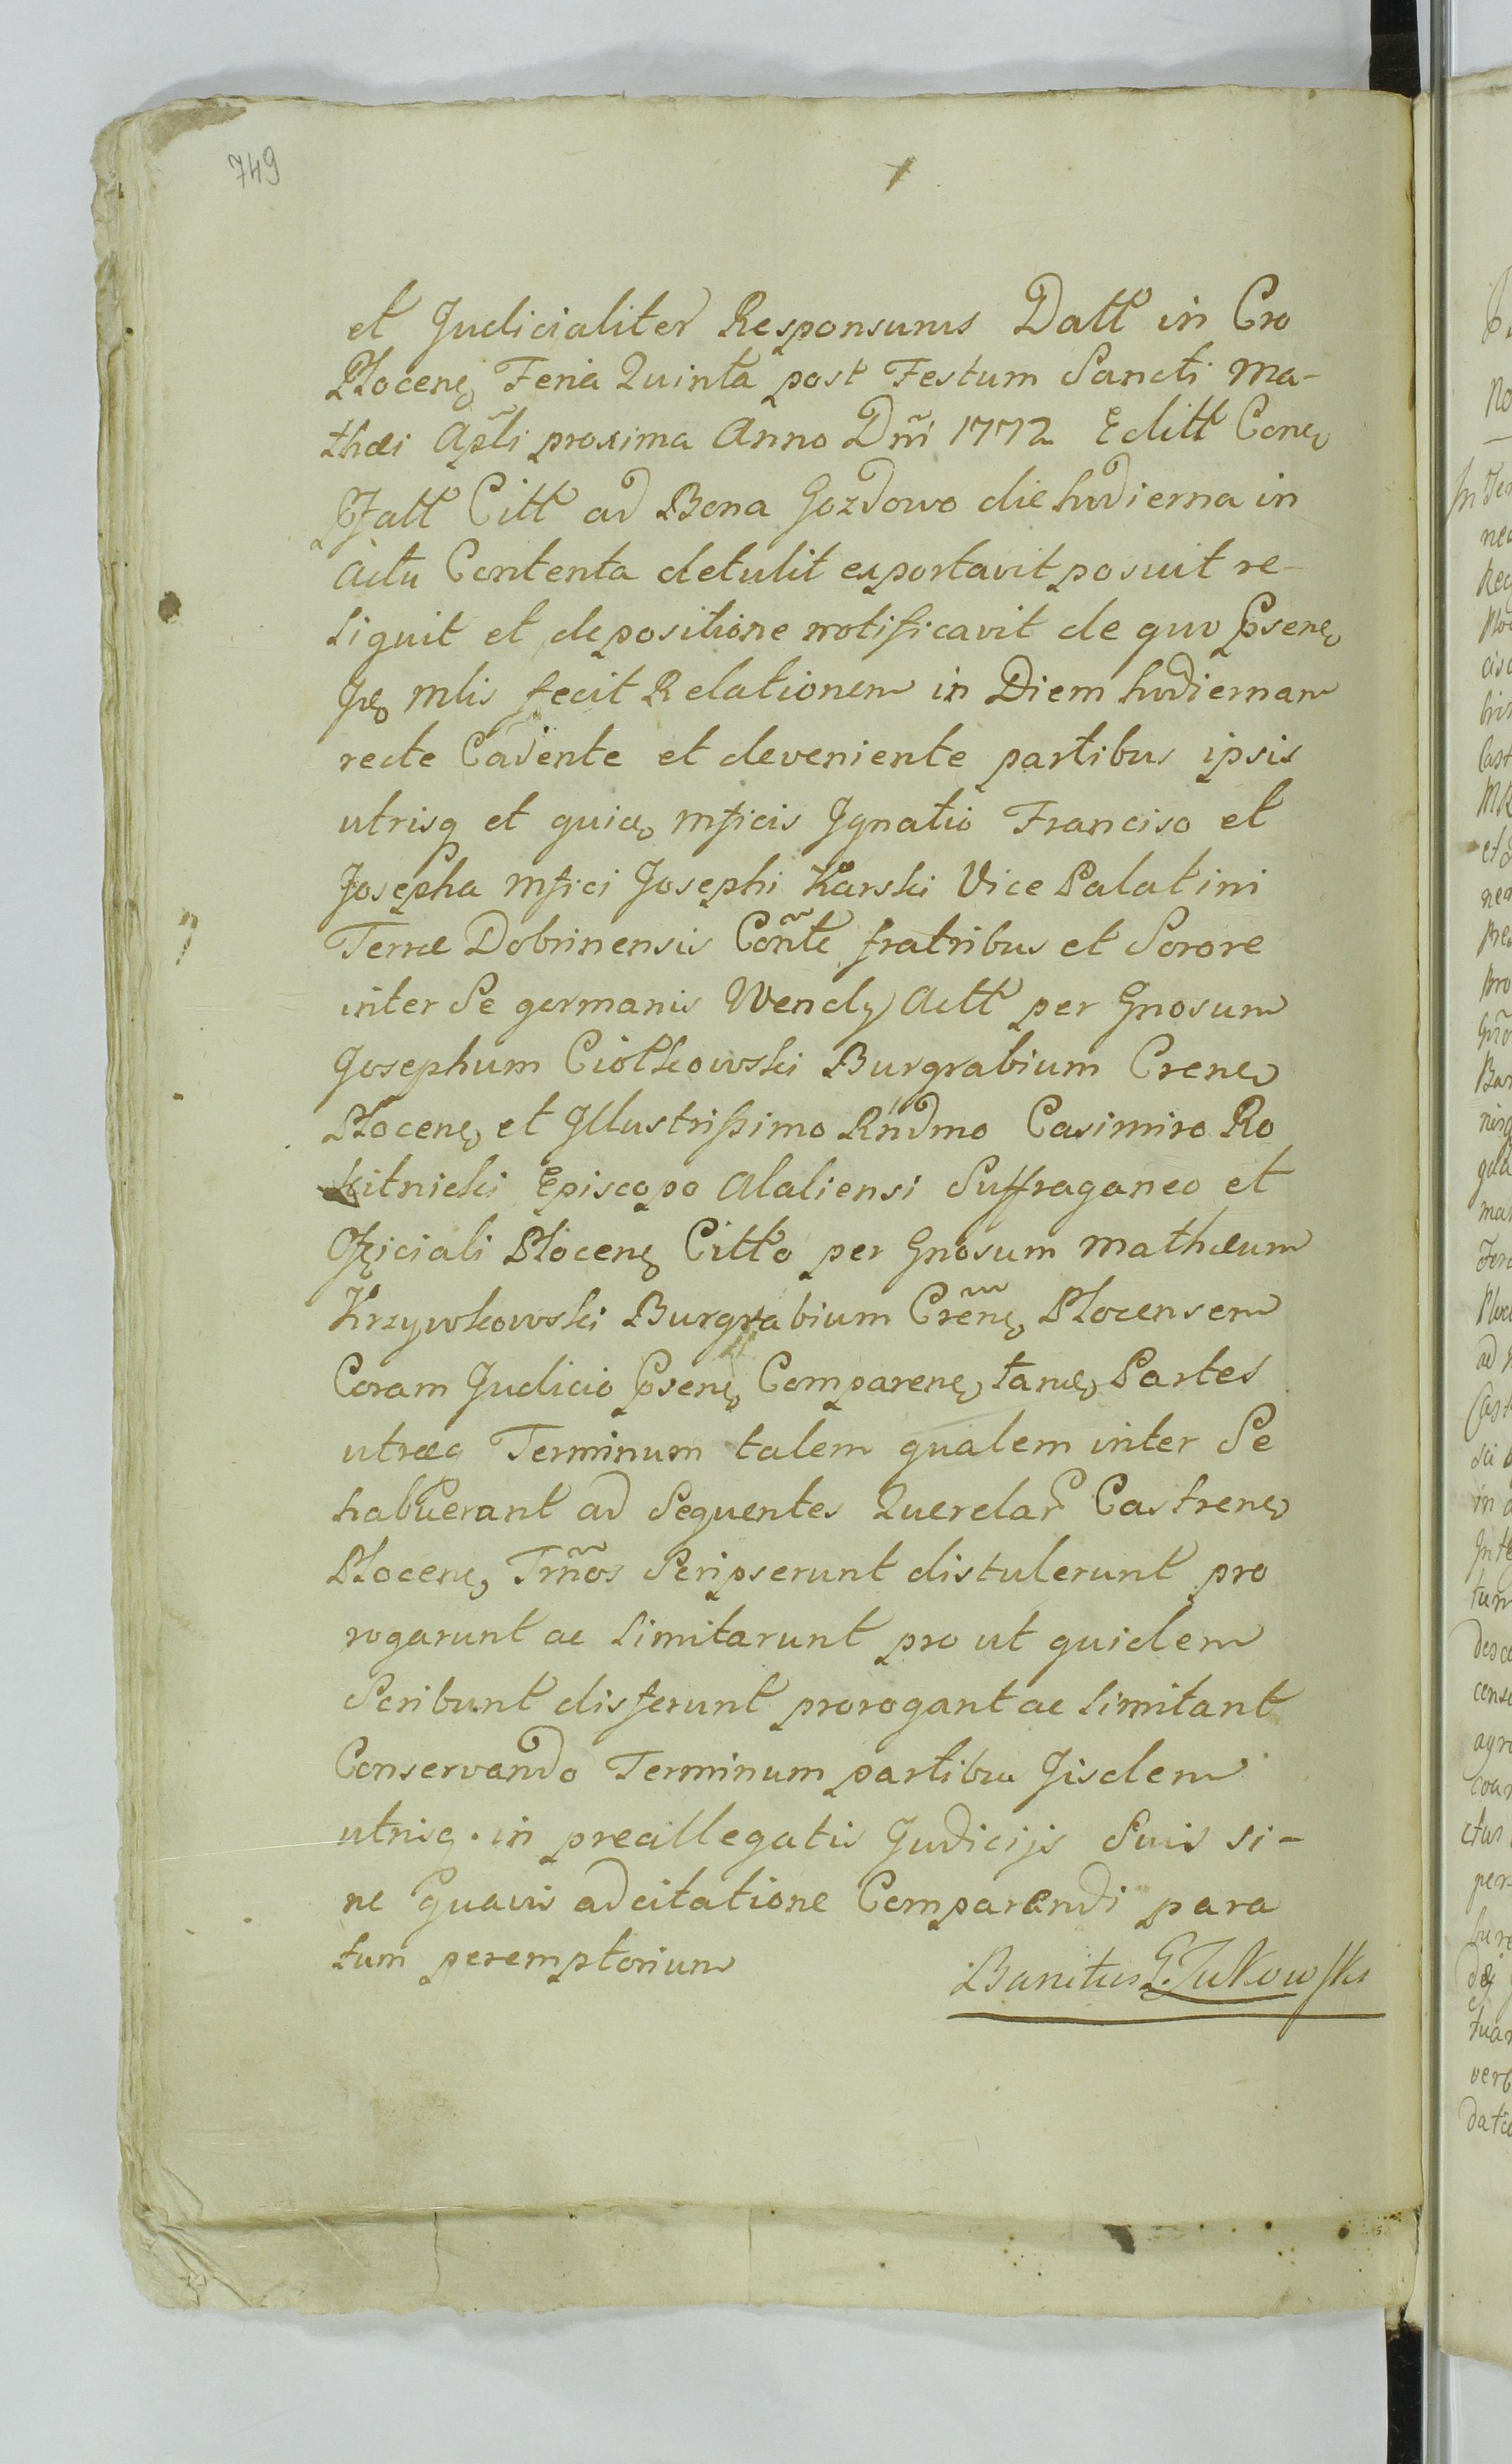 749
et Judicialiter Responsurus Datt in Cro
Plocenę Feria Quinta post Festum Sancti Ma-
thæi Apl̃i proxima Anno Dñi 1772 Editt Cone
Pfatt Citt ad Bona Gozdowo die hodierna in
Actu Contenta detulit exportavit posuit re-
liquit et depositione notificavit de quo Psenę
Jrę mlis fecit Relationem in Diem hodiernam
recte Cadente et deveniente partibus ipsis
utrisq et quidę mficis Ignatio Franciso et
Josepha mfici Josephi Karski Vice Palatini
Terræ Dobrinensis Coñte fratribus et Sorore
inter Se germanis Wendy Actt per Gnosum
Josephum Ciółkowski Burgrabium Crene
Plocenę et Illustrissimo Rndmo Casimiro Ro
kitnicki Episcopo Alaliensi Suffraganeo et
Officiali Plocenę Citto per Gnosum Mathæum
Krzywkowski Burgrabium Creñę Plocensem
Coram Judicio Psenę Comparenę tamę Partes
utræq Terminum talem qualem inter Se
habuerant ad Sequentes Querelar Castrene
Plocenę Trños Scripserunt distulerunt pro
rogarunt ac limitarunt pro ut quidem
Scribunt disferunt prorogant ac limitant
Conservando Terminum partibus Iisdem
utrisq. in preallegatis Judicijs Suis si-
ne quavis adcitatione Comparendi para
tum peremptorium